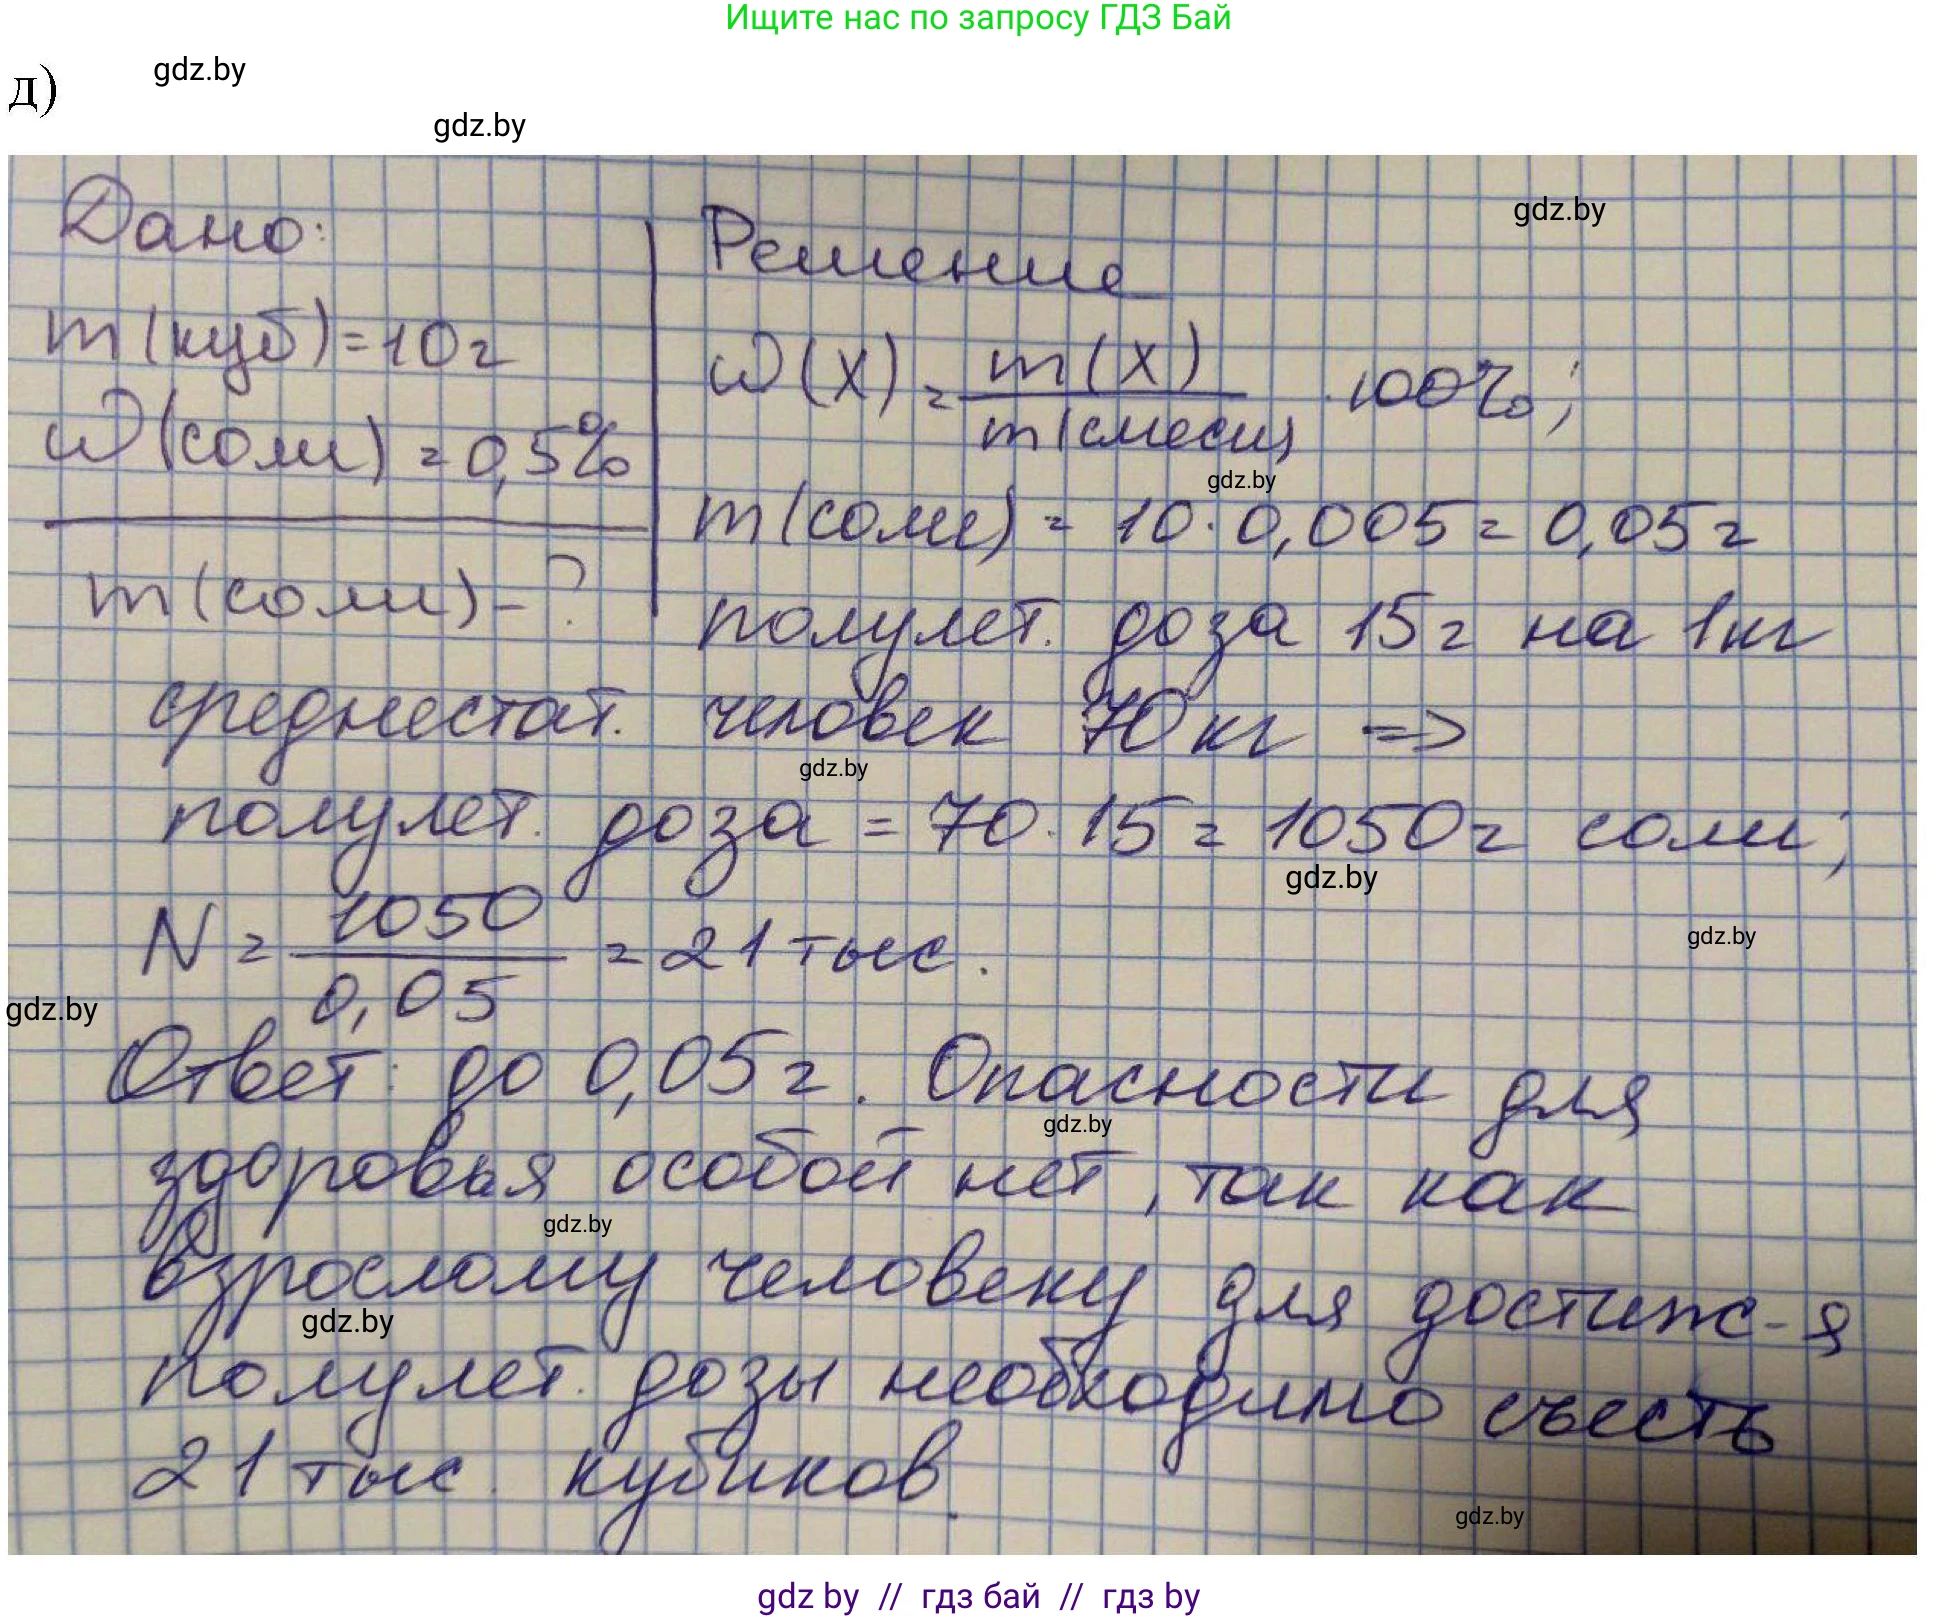 Ищите нас по запросу ГДЗ Бай
д)
gdz.by
gdz.by
Дано:
Решение
gdz.by
m(куб)=10г
ω(X) = m(X) / m(смеси) · 100%;
ω(соли) = 0,5%
gdz.by
m(соли) = 10·0,005 = 0,05г
m(соли) - ?
полулет. доза 15г на 1кг
среднестат. человек 70кг =>
gdz.by
полулет. доза = 70·15 = 1050г соли;
gdz.by
N = 1050 / 0,05 = 21 тыс.
gdz.by
gdz.by
Ответ: до 0,05г. Опасности для
gdz.by
здоровья особой нет, так как
gdz.by
взрослому человеку для достиж-я
gdz.by
полулет. дозы необходимо съесть
21 тыс. кубиков.
gdz.by
gdz by // гдз бай // гдз by